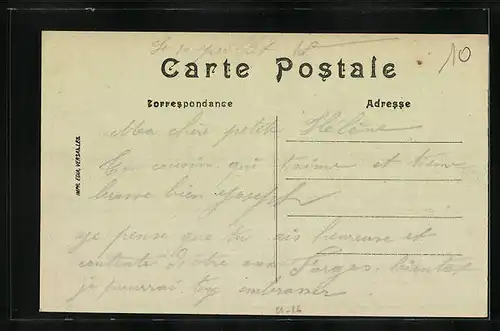 10
Carte Postale
Correspondance
Adresse
IMP. EDIA, VERSAILLES
Ma chère petite Hélène
Ton cousin qui t'aime et t'em
brasse bien Joseph
je pense que tu es heureuse et
contente d'être aux Forges. bientot
je pourrai t'y embrasser